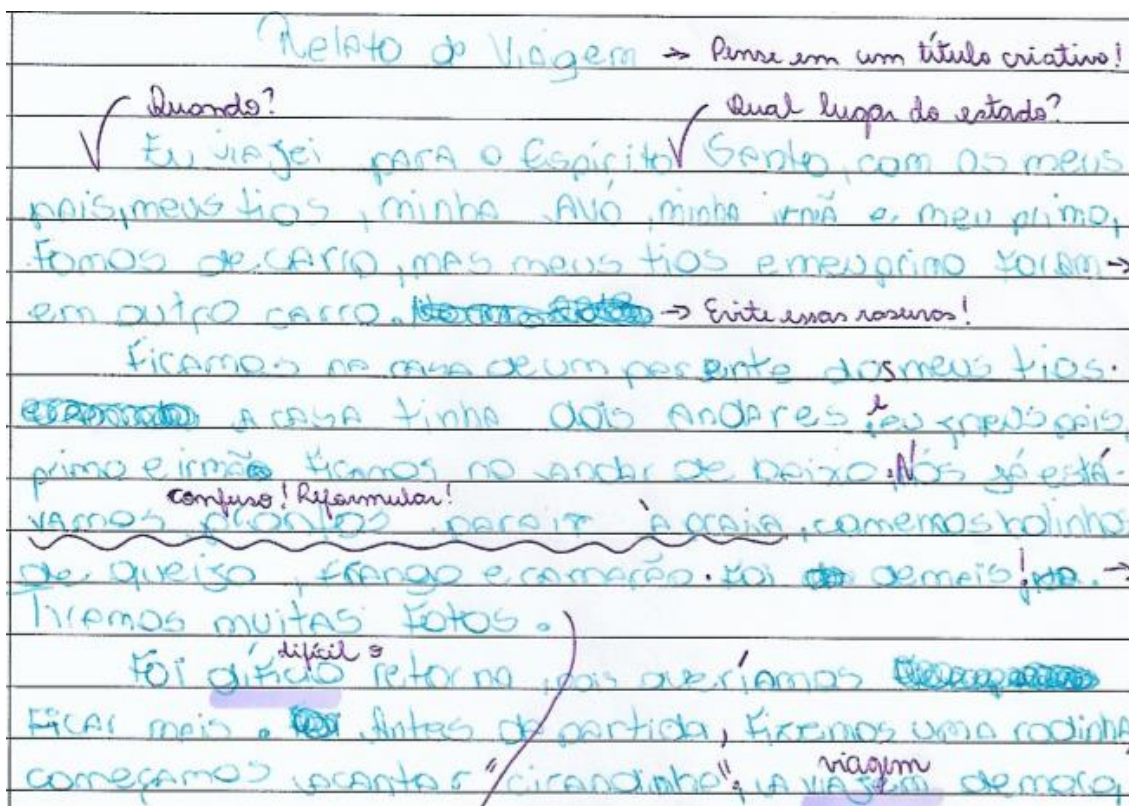 Relato de Viagem → Pense em um título criativo!
Quando? Qual lugar do estado?
Eu viajei para o Espírito Santo, com os meus
pais, meus tios, minha avó, minha irmã e meu primo,
Fomos de carro, mas meus tios e meu primo foram →
em outro carro. → Evite essas rasuras!
Ficamos na casa de um parente dos meus tios.
A casa tinha dois andares e eu, meus pais,
primo e irmão ficamos no andar de baixo. Nós já está-
confuso! Reformular!
vamos prontos para ir à praia, comemos bolinhos
de queijo, frango e camarão. Foi demais! →
Tiramos muitas fotos.
difícil o
Foi dificio retorno, pois queríamos
ficar mais. Antes da partida, fizemos uma rodinha
viagem
começamos a cantar "cirandinha". A viajem demoro,